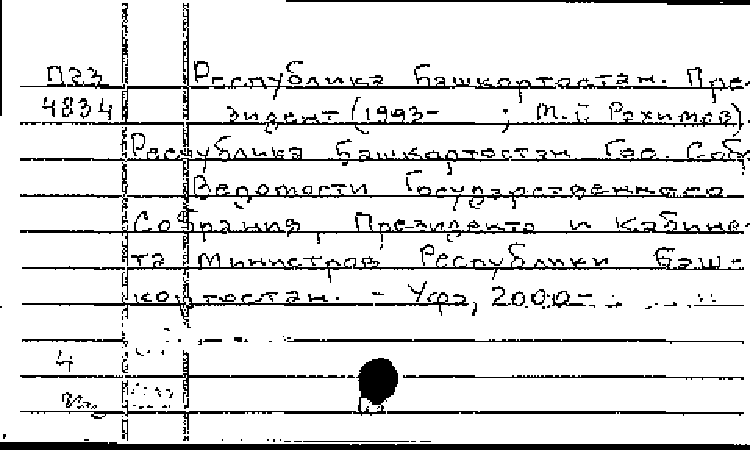 П23 Республика Башкортостан. Пре-
4834 зидент (1993- ; М.Г. Рахимов).
Республика Башкортостан. Гос. Собр
Ведомости Государственного
Собрания, Президента и Кабине-
та Министров Республики Баш-
кортостан. - Уфа, 2000-
4